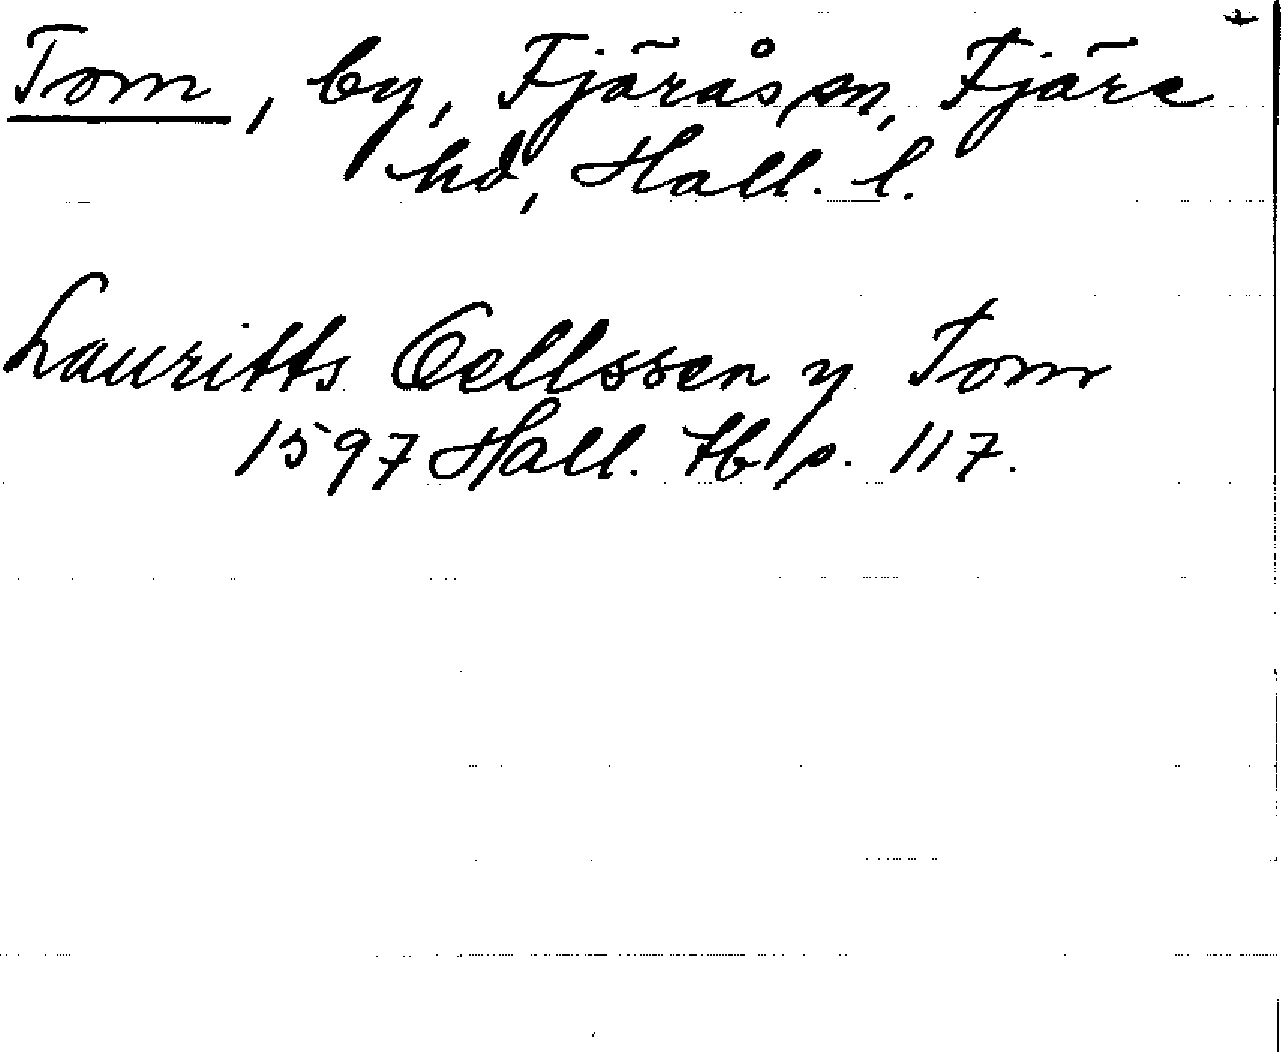 Tom, by, Fjärås sn, Fjäre
hd, Hall. l.
Lauritts Oellssen y Tom
1597 Hall. tb p. 117.